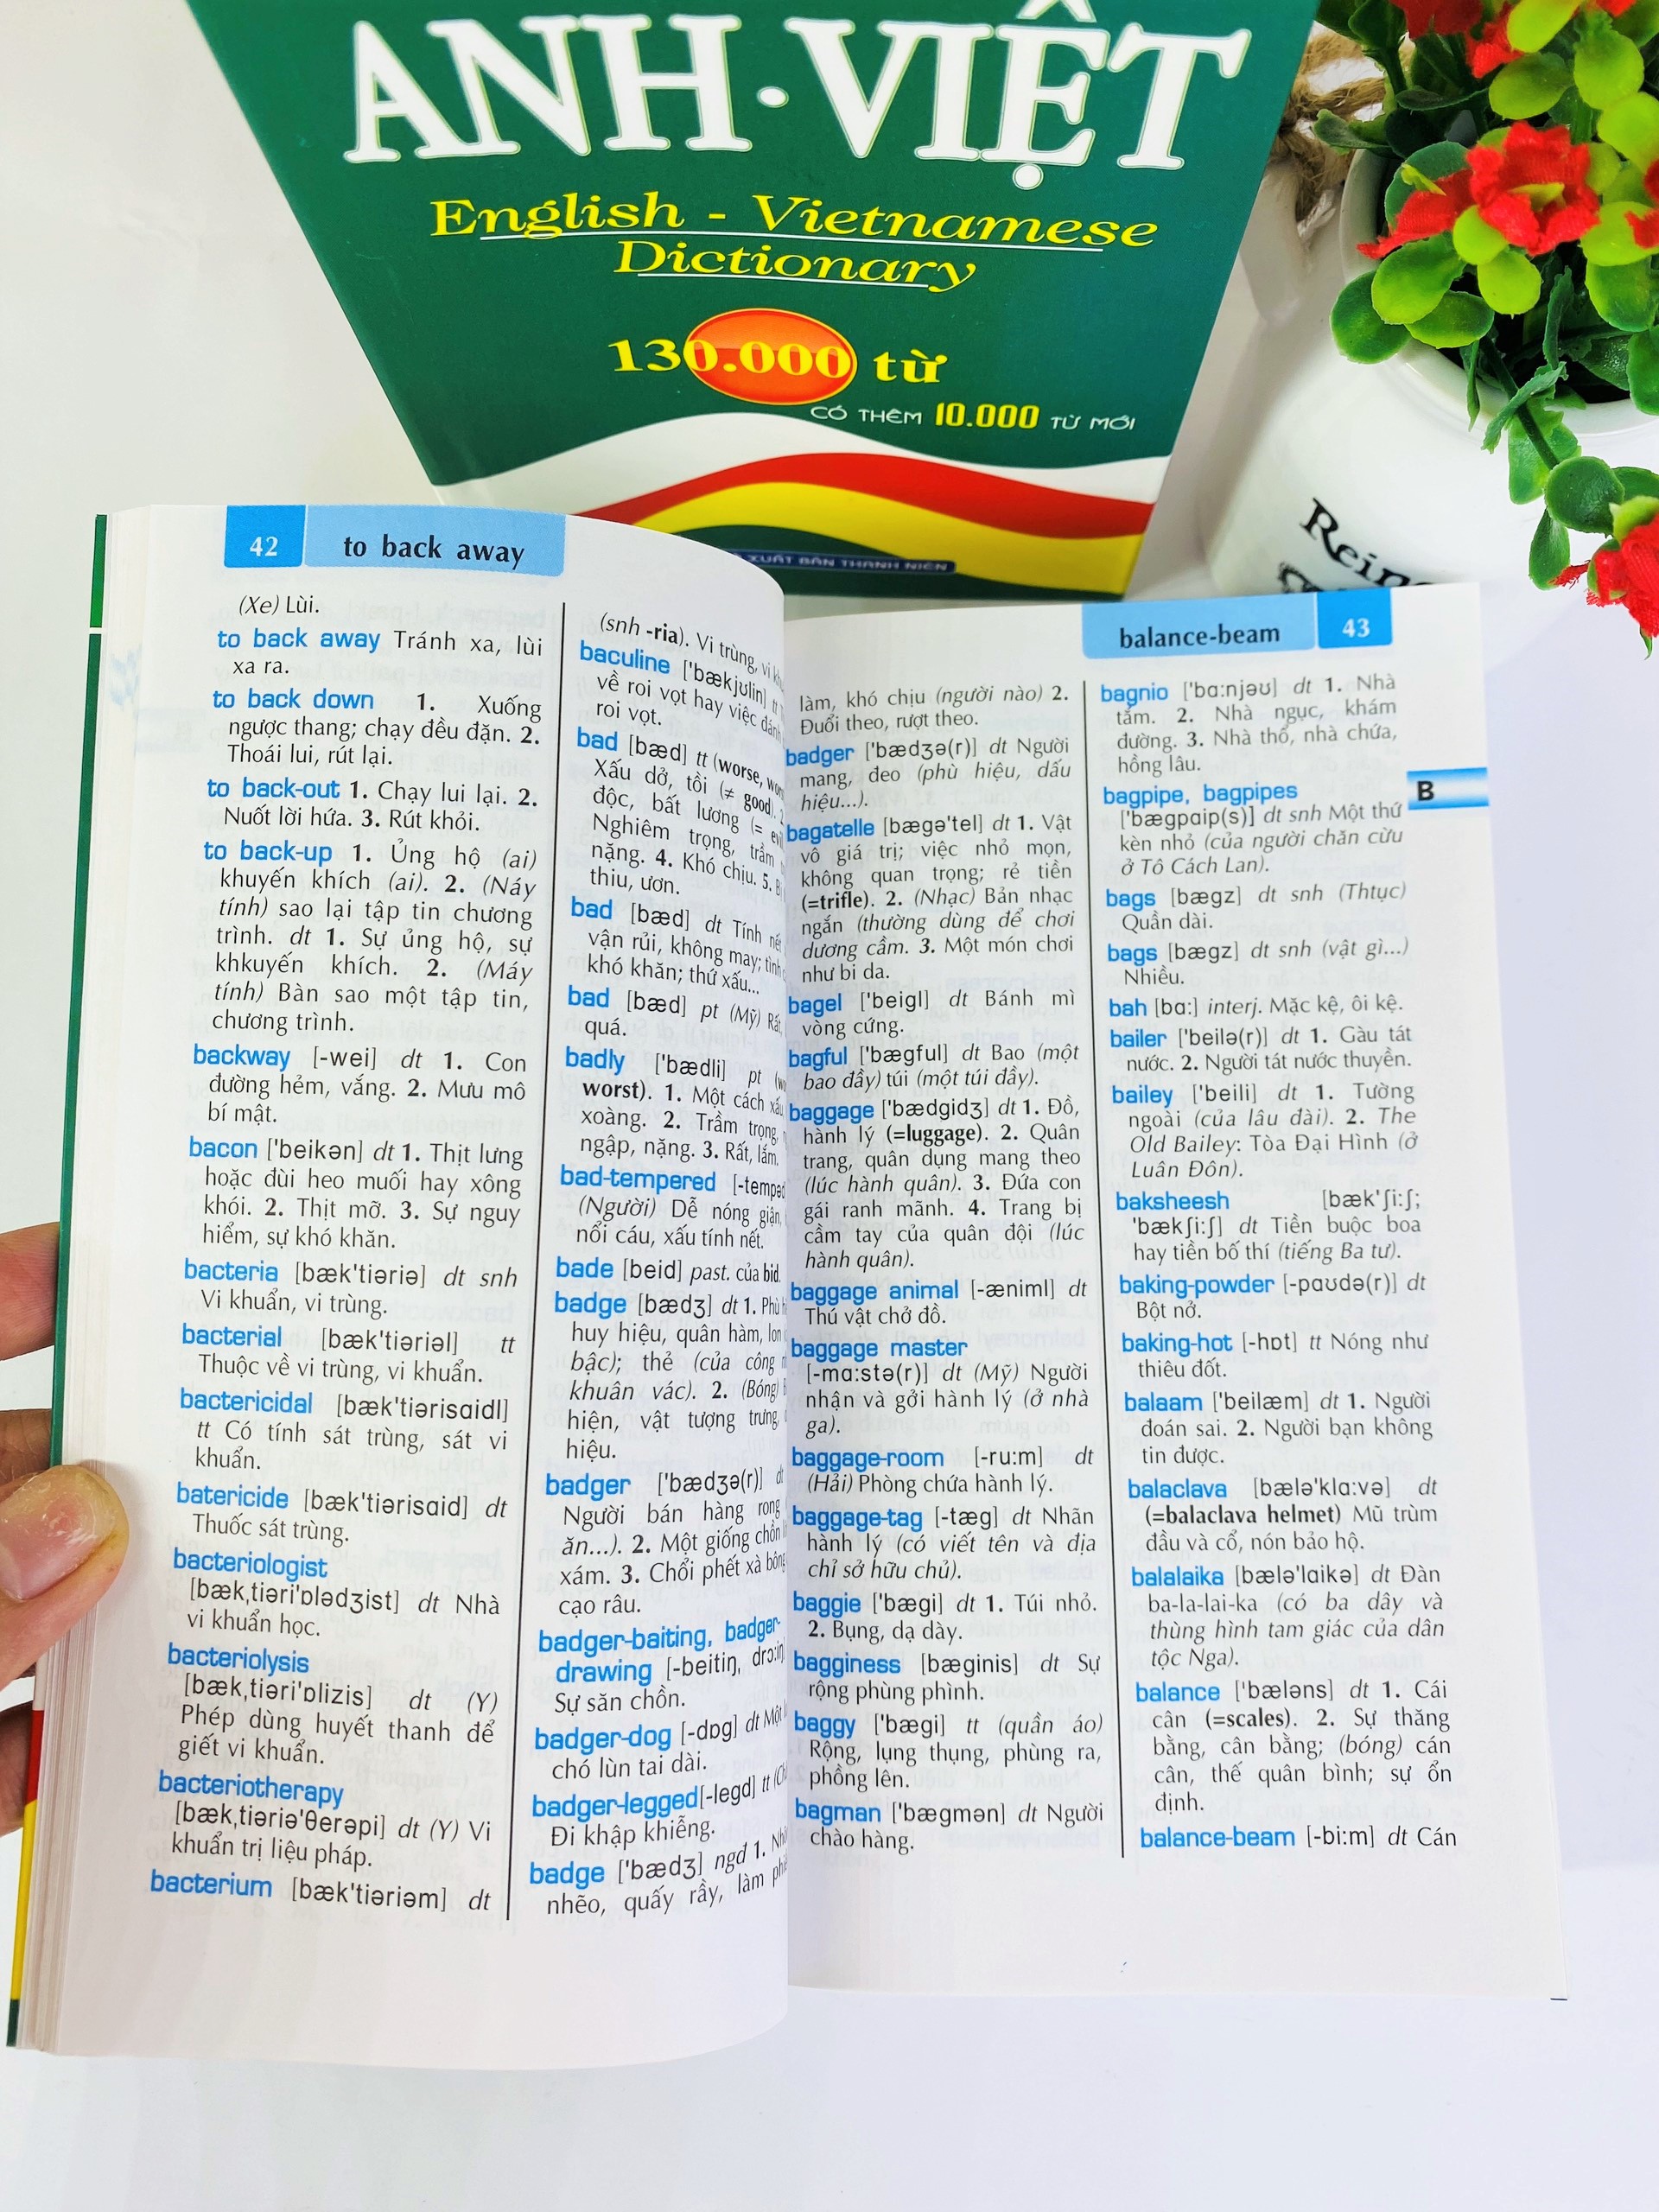 ANH·VIỆT
English - Vietnamese
Dictionary
130.000 từ
CÓ THÊM 10.000 TỪ MỚI
XUẤT BẢN THANH NIÊN
42 to back away
(Xe) Lùi.
to back away Tránh xa, lùi
xa ra.
to back down 1. Xuống
ngược thang; chạy đều đặn. 2.
Thoái lui, rút lại.
to back-out 1. Chạy lui lại. 2.
Nuốt lời hứa. 3. Rút khỏi.
to back-up 1. Ủng hộ (ai)
khuyến khích (ai). 2. (Náy
tính) sao lại tập tin chương
trình. dt 1. Sự ủng hộ, sự
khkuyến khích. 2. (Máy
tính) Bàn sao một tập tin,
chương trình.
backway [-wei] dt 1. Con
đường hẻm, vắng. 2. Mưu mô
bí mật.
bacon ['beikən] dt 1. Thịt lưng
hoặc đùi heo muối hay xông
khói. 2. Thịt mỡ. 3. Sự nguy
hiểm, sự khó khăn.
bacteria [bæk'tiəriə] dt snh
Vi khuẩn, vi trùng.
bacterial [bæk'tiəriəl] tt
Thuộc về vi trùng, vi khuẩn.
bactericidal [bæk'tiərisɑidl]
tt Có tính sát trùng, sát vi
khuẩn.
batericide [bæk'tiərisɑid] dt
Thuốc sát trùng.
bacteriologist
[bæk,tiəri'ɒlədʒist] dt Nhà
vi khuẩn học.
bacteriolysis
[bæk,tiəri'ɒlizis] dt (Y)
Phép dùng huyết thanh để
giết vi khuẩn.
bacteriotherapy
[bæk,tiəriə'θerəpi] dt (Y) Vi
khuẩn trị liệu pháp.
bacterium [bæk'tiəriəm] dt
(snh -ria). Vi trùng, vi
baculine ['bækjʊlin]
về roi vọt hay việc đánh
roi vọt.
bad [bæd] tt (worse,
Xấu dở, tồi (≠ good).
độc, bất lương (=
Nghiêm trọng, trầm
nặng. 4. Khó chịu. 5.
thiu, ươn.
bad [bæd] dt Tính
vận rủi, không may;
khó khăn; thứ xấu...
bad [bæd] pt (Mỹ) Rất,
quá.
badly ['bædli] pt
worst). 1. Một cách xấu
xoàng. 2. Trầm trọng,
ngập, nặng. 3. Rất, lắm.
bad-tempered
(Người) Dễ nóng giận,
nổi cáu, xấu tính nết.
bade [beid] past. của bid.
badge [bædʒ] dt 1. Phù
huy hiệu, quân hàm, lon
bậc); thẻ (của công
khuân vác). 2. (Bóng)
hiện, vật tượng trưng,
hiệu.
badger ['bædʒə(r)]
Người bán hàng rong
ăn...). 2. Một giống chồn
xám. 3. Chổi phết xà bông
cạo râu.
badger-baiting, badger-
drawing [-beitiŋ, drɔ:iŋ]
Sự săn chồn.
badger-dog [-dɒg] dt Một
chó lùn tai dài.
badger-legged[-legd] tt
Đi khập khiễng.
badge ['bædʒ] ngđ 1.
nhẽo, quấy rầy, làm
balance-beam 43
làm, khó chịu (người nào) 2.
Đuổi theo, rượt theo.
badger ['bædʒə(r)] dt Người
mang, đeo (phù hiệu, dấu
hiệu...).
bagatelle [bægə'tel] dt 1. Vật
vô giá trị; việc nhỏ mọn,
không quan trọng; rẻ tiền
(=trifle). 2. (Nhạc) Bản nhạc
ngắn (thường dùng để chơi
dương cầm. 3. Một món chơi
như bi da.
bagel ['beigl] dt Bánh mì
vòng cứng.
bagful ['bægful] dt Bao (một
bao đầy) túi (một túi đầy).
baggage ['bædgidʒ] dt 1. Đồ,
hành lý (=luggage). 2. Quân
trang, quân dụng mang theo
(lúc hành quân). 3. Đứa con
gái ranh mãnh. 4. Trang bị
cầm tay của quân đội (lúc
hành quân).
baggage animal [-æniml] dt
Thú vật chở đồ.
baggage master
[-mɑ:stə(r)] dt (Mỹ) Người
nhận và gởi hành lý (ở nhà
ga).
baggage-room [-ru:m] dt
(Hải) Phòng chứa hành lý.
baggage-tag [-tæg] dt Nhãn
hành lý (có viết tên và địa
chỉ sở hữu chủ).
baggie ['bægi] dt 1. Túi nhỏ.
2. Bụng, dạ dày.
bagginess [bæginis] dt Sự
rộng phùng phình.
baggy ['bægi] tt (quần áo)
Rộng, lụng thụng, phùng ra,
phồng lên.
bagman ['bægmən] dt Người
chào hàng.
bagnio ['bɑ:njəʊ] dt 1. Nhà
tắm. 2. Nhà ngục, khám
đường. 3. Nhà thổ, nhà chứa,
hồng lâu.
bagpipe, bagpipes
['bægpɑip(s)] dt snh Một thứ
kèn nhỏ (của người chăn cừu
ở Tô Cách Lan).
bags [bægz] dt snh (Thtục)
Quần dài.
bags [bægz] dt snh (vật gì...)
Nhiều.
bah [bɑ:] interj. Mặc kệ, ôi kệ.
bailer ['beilə(r)] dt 1. Gàu tát
nước. 2. Người tát nước thuyền.
bailey ['beili] dt 1. Tường
ngoài (của lâu đài). 2. The
Old Bailey: Tòa Đại Hình (ở
Luân Đôn).
baksheesh [bæk'ʃi:ʃ;
'bækʃi:ʃ] dt Tiền buộc boa
hay tiền bố thí (tiếng Ba tư).
baking-powder [-pɑʊdə(r)] dt
Bột nở.
baking-hot [-hɒt] tt Nóng như
thiêu đốt.
balaam ['beilæm] dt 1. Người
đoán sai. 2. Người bạn không
tin được.
balaclava [bælə'klɑ:və] dt
(=balaclava helmet) Mũ trùm
đầu và cổ, nón bảo hộ.
balalaika [bælə'lɑikə] dt Đàn
ba-la-lai-ka (có ba dây và
thùng hình tam giác của dân
tộc Nga).
balance ['bæləns] dt 1. Cái
cân (=scales). 2. Sự thăng
bằng, cân bằng; (bóng) cán
cân, thế quân bình; sự ổn
định.
balance-beam [-bi:m] dt Cán
B